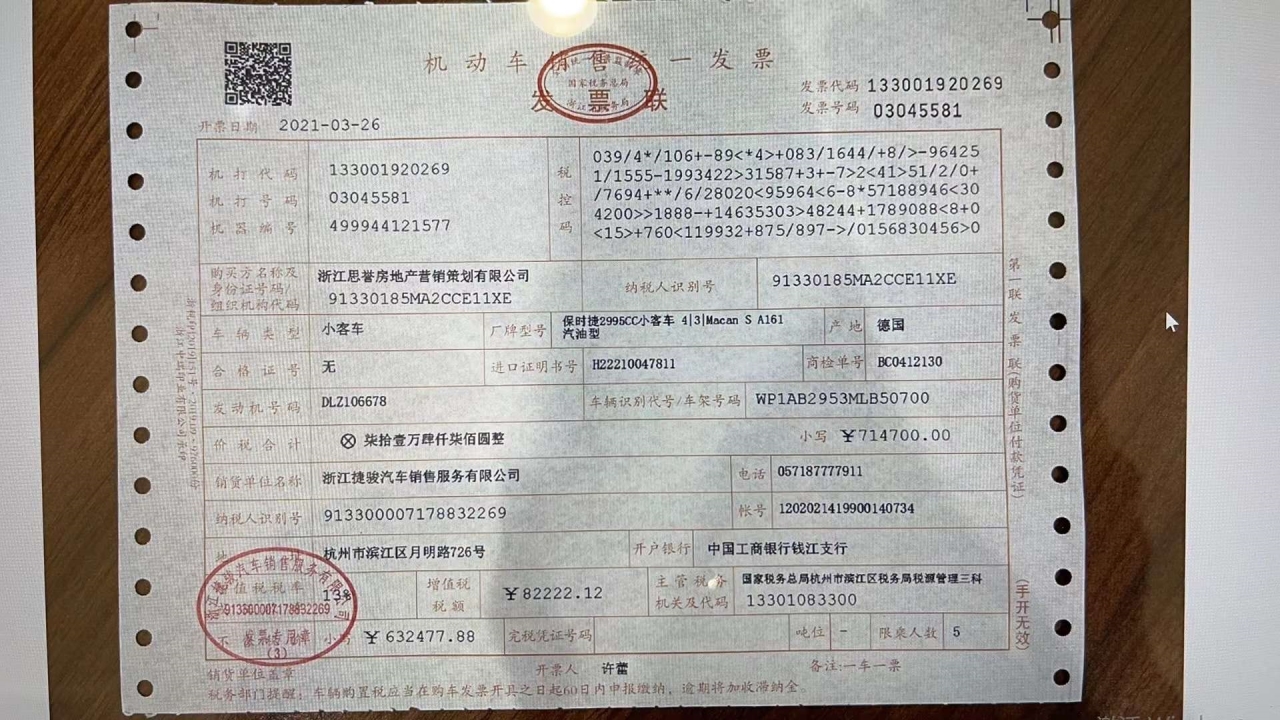 机动车销售统一发票
发票联
发票代码 133001920269
发票号码 03045581
开票日期 2021-03-26
机打代码 133001920269
机打号码 03045581
机器编号 499944121577
税控码
039/4*/106+-89<*4>+083/1644/+8/>-96425
1/1555-1993422>31587+3+-7>2<41>51/2/0+
/7694+**/6/28020<95964<6-8*57188946<30
4200>>1888-+14635303>48244+1789088<8+0
<15>+760<119932+875/897->/0156830456>0
购买方名称及身份证号码/组织机构代码 浙江思誉房地产营销策划有限公司
91330185MA2CCE11XE
纳税人识别号 91330185MA2CCE11XE
车辆类型 小客车 厂牌型号 保时捷2995CC小客车 4|3|Macan S A161
汽油型 产地 德国
合格证号 无 进口证明书号 H22210047811 商检单号 BC0412130
发动机号码 DLZ106678 车辆识别代号/车架号码 WP1AB2953MLB50700
价税合计 ⊗ 柒拾壹万肆仟柒佰圆整 小写 ¥714700.00
销货单位名称 浙江捷骏汽车销售服务有限公司 电话 057187777911
纳税人识别号 913300007178832269 帐号 1202021419900140734
杭州市滨江区月明路726号 开户银行 中国工商银行钱江支行
值税税率 13% 增值税税额 ¥82222.12 主管税务机关及代码 国家税务总局杭州市滨江区税务局税源管理三科
13301083300
不 小 ¥632477.88 完税凭证号码 吨位 - 限乘人数 5
913300007178832269
发票专用章
(3)
销货单位盖章 开票人 许蕾 备注:一车一票
税务部门提醒:车辆购置税应当在购车发票开具之日起60日内申报缴纳,逾期将加收滞纳金
第一联 发票联(购货单位付款凭证)
(手开无效)
国家税务总局